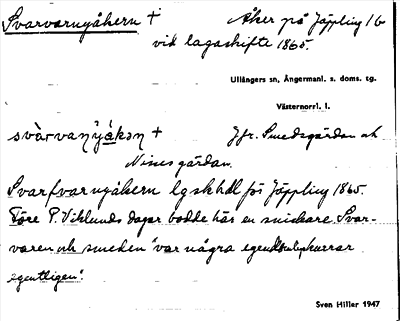 Svarvarnyåkern † Åker på Jäppling 16
vid lagaskifte 1865.
Ullångers sn, Ångermanl. s. doms. tg.
Västernorrl. l.
svàrvanỳåkən † Jfr. Smedsgårdan ok
Nisesgårdan.
Svarfvarnyåkern lgskhdl för Jäppling 1865.
Före P. Viklunds dagar bodde här en snickare Svar-
varen ock smeden "var några
egentligen".
Sven Hiller 1947